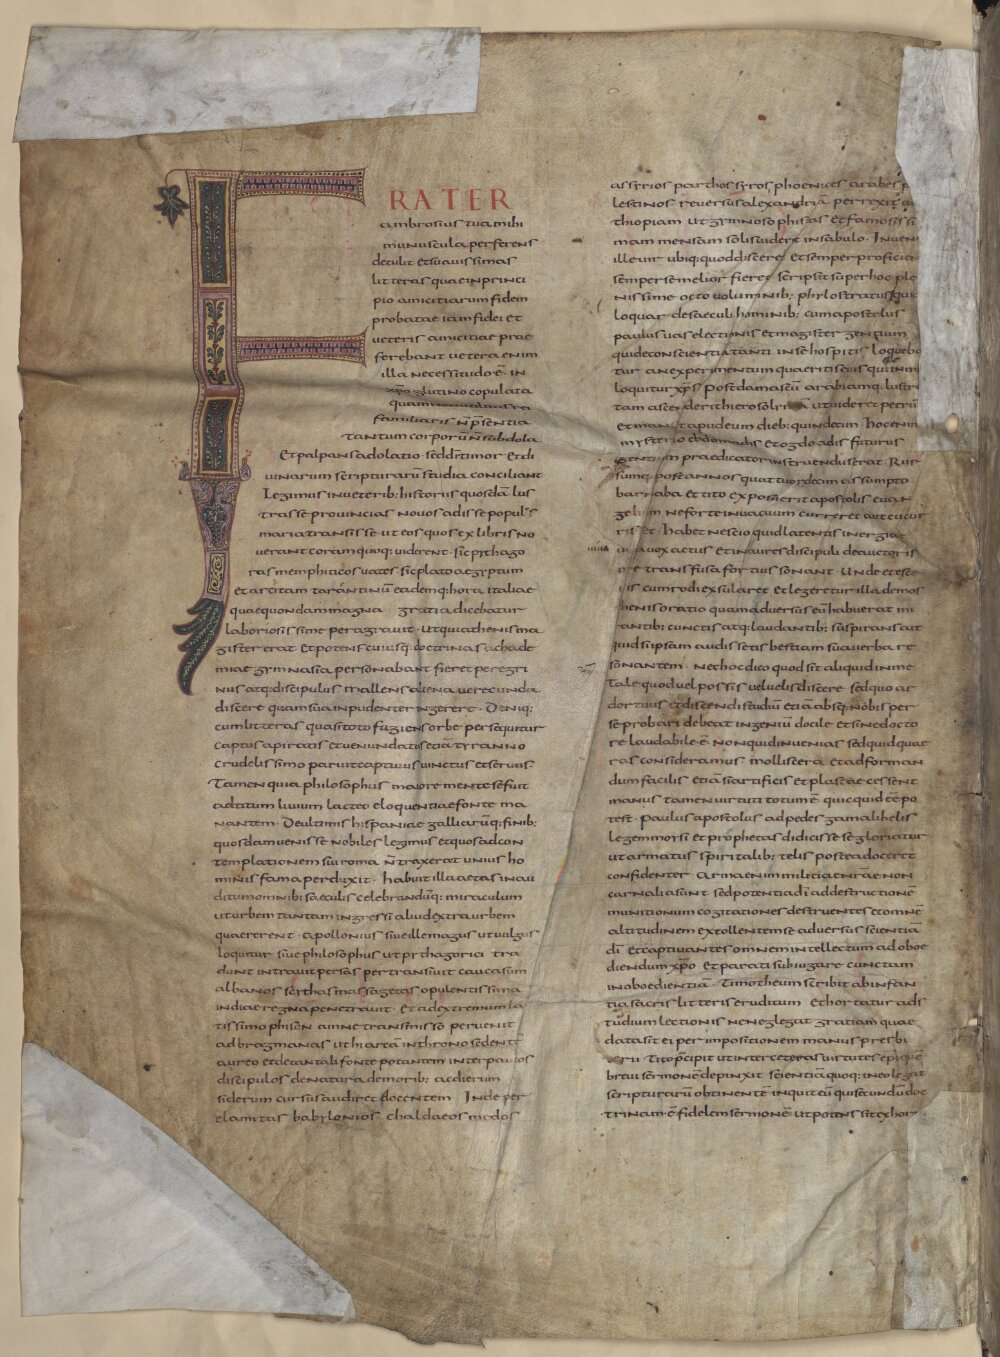 FRATER
ambrosius tua mihi
munuscula perferens
detulit et suavissimas
litteras quae in princi
pio amicitiarum fidem
probatae iam fidei et
veteris amicitiae prae
ferebant vetera enim
illa necessitudo ē. in
xp̄i glutino copulata
quam non utilitas rei
familiaris n̄ p̄sentia
tantum corporū n̄ subdola
Et palpans adolatio. sed dī timor. Et di
uinarum scripturarū studia conciliant
Legimus in veterib; historiis quosdā lus
trasse provincias novos adisse populos
maria transisse ut eos quos ex libris no
verant coram quoq; viderent. sic pythago
ras memphiticos vates. sic plato aegyptum
et arcitam tarantinū eademq; hora italiae
quae quondam magna gratia dicebatur
laboriosissime peragravit. ut qui athenis ma
gister erat et potens cuiusq; doctrinas achade
miae gymnasia personabant fieret peregri
nus atq; discipulus mallens aliena verecunde
discere quam sua inpudenter ingerere. Deniq;
cum litteras quasi toto fugiens orbe persequitur
captus a piratis et venundatus etiā tyranno
crudelissimo paruit captivus vinctus et servus.
Tamen quia philosophus maiore mente se fuit
ad titum livium lacteo eloquentiae fonte ma
nantem. De ultimis hispaniae galliarūq; finib;
quosdam venisse nobiles legimus et quos ad con
templationem sui roma n̄ traxerat unius ho
minis fama perduxit. habuit illa aetas inau
ditum omnib; saeculis celebrandūq; miraculum
ut urbem tantam ingressi aliud extra urbem
quaererent. apollonius sive ille magus ut vulgus
loquitur sive philosophus ut pythagorici tra
dunt intravit persas pertransiuit caucasum
albanos scythas massagetas opulentissima
indiae regna penetravit. Et ad extremum la
tissimo phison amne transmisso pervenit
ad bragmanas ut hiarcam in throno sedentē
aureo et de tantali fonte potantem inter paucos
discipulos de natura de morib; ac dierum
siderum cursus audiret docentem. Inde per
elamitas babylonios chaldaeos medos
assyrios parthos syros phoenices arabes p
lestinos reversus alexandriā perrexit ae
thiopiam ut gymnosophistas et famosissi
mam mensam solis videret in sabulo. Inveni
ille vir ubiq; quod disceret. Et semper proficien
semper se melior fieret. scripsit super hoc ple
nissime octo voluminib; phylostratus quid
loquar de saeculi hominib; cum apostolus
paulus vas electionis et magister gentium
qui de conscientia tanti in se hospitis loqueba
tur. an experimentum quaeritis eius qui in me
loquitur xp̄s. Post damascū arabiamq; lustra
tam ascenderit hierosolimā ut videret petrū
Et mansit apud eum dieb; quindecim. hoc enim
mysterio ebdomadis et ogdoadis futurus
gentium praedicator instruendus erat. Rur
sumq; post annos quattuordecim assumpto
barnaba et tito exposuerit apostolis evan
gelium ne forte in vacuum curreret aut cucur
risset. habet nescio quid latentis inergiae
viva vox actus et in aures discipuli de auctoris
ore transfusa fortius sonant. Unde et esc
inis cum rodi exsularet et legeretur illa demos
thenis oratio quam adversus eū habuerat mi
rantib; cunctis atq; laudantib; suspirans ait
quid si ipsam audissetis bestiam sua verba re
sonantem. Nec hoc dico quod sit aliquid in me
Tale quod vel possis vel velis discere. sed quo ar
dor tuus et discendi studiū etiā absq; nobis per
se probari debeat. ingeniū docile et sine docto
re laudabile ē. non quid invenias sed quid quae
ras consideramus. mollis cera et ad forman
dum facilis etiā si artificis et plastae cessent
manus tamen virtuti totum ē quicquid eē po
test. Paulus apostolus ad pedes gamalihelis
legem morsi et prophetas didicisse se gloriatur
ut armatus spiritalib; telis postea doceret
confidenter. arma enim militiae nr̄ae non
carnalia sunt sed potentia dī ad destructionē
munitionum cogitationes destruentes et omnē
altitudinem extollentem se adversus scientiā
dī. Et captivantes omnem intellectum ad oboe
diendum xp̄o. Et parati subiugare cunctam
inaboedientiā. Timotheum scribit ab infan
tia sacris litteris eruditum. et hortatur ad s
tudium lectionis ne neglegat gratiam quae
data sit ei per impositionem manus presbi
terii. Tito p̄cipit ut inter ceteras virtutes ep̄i quē
brevi sermonē depinxit. scientiā quoq; in eo legat
scripturarū obtinentē inquit eū qui secundū doc
trinam ē fidelem sermonē. ut potens sit exhor